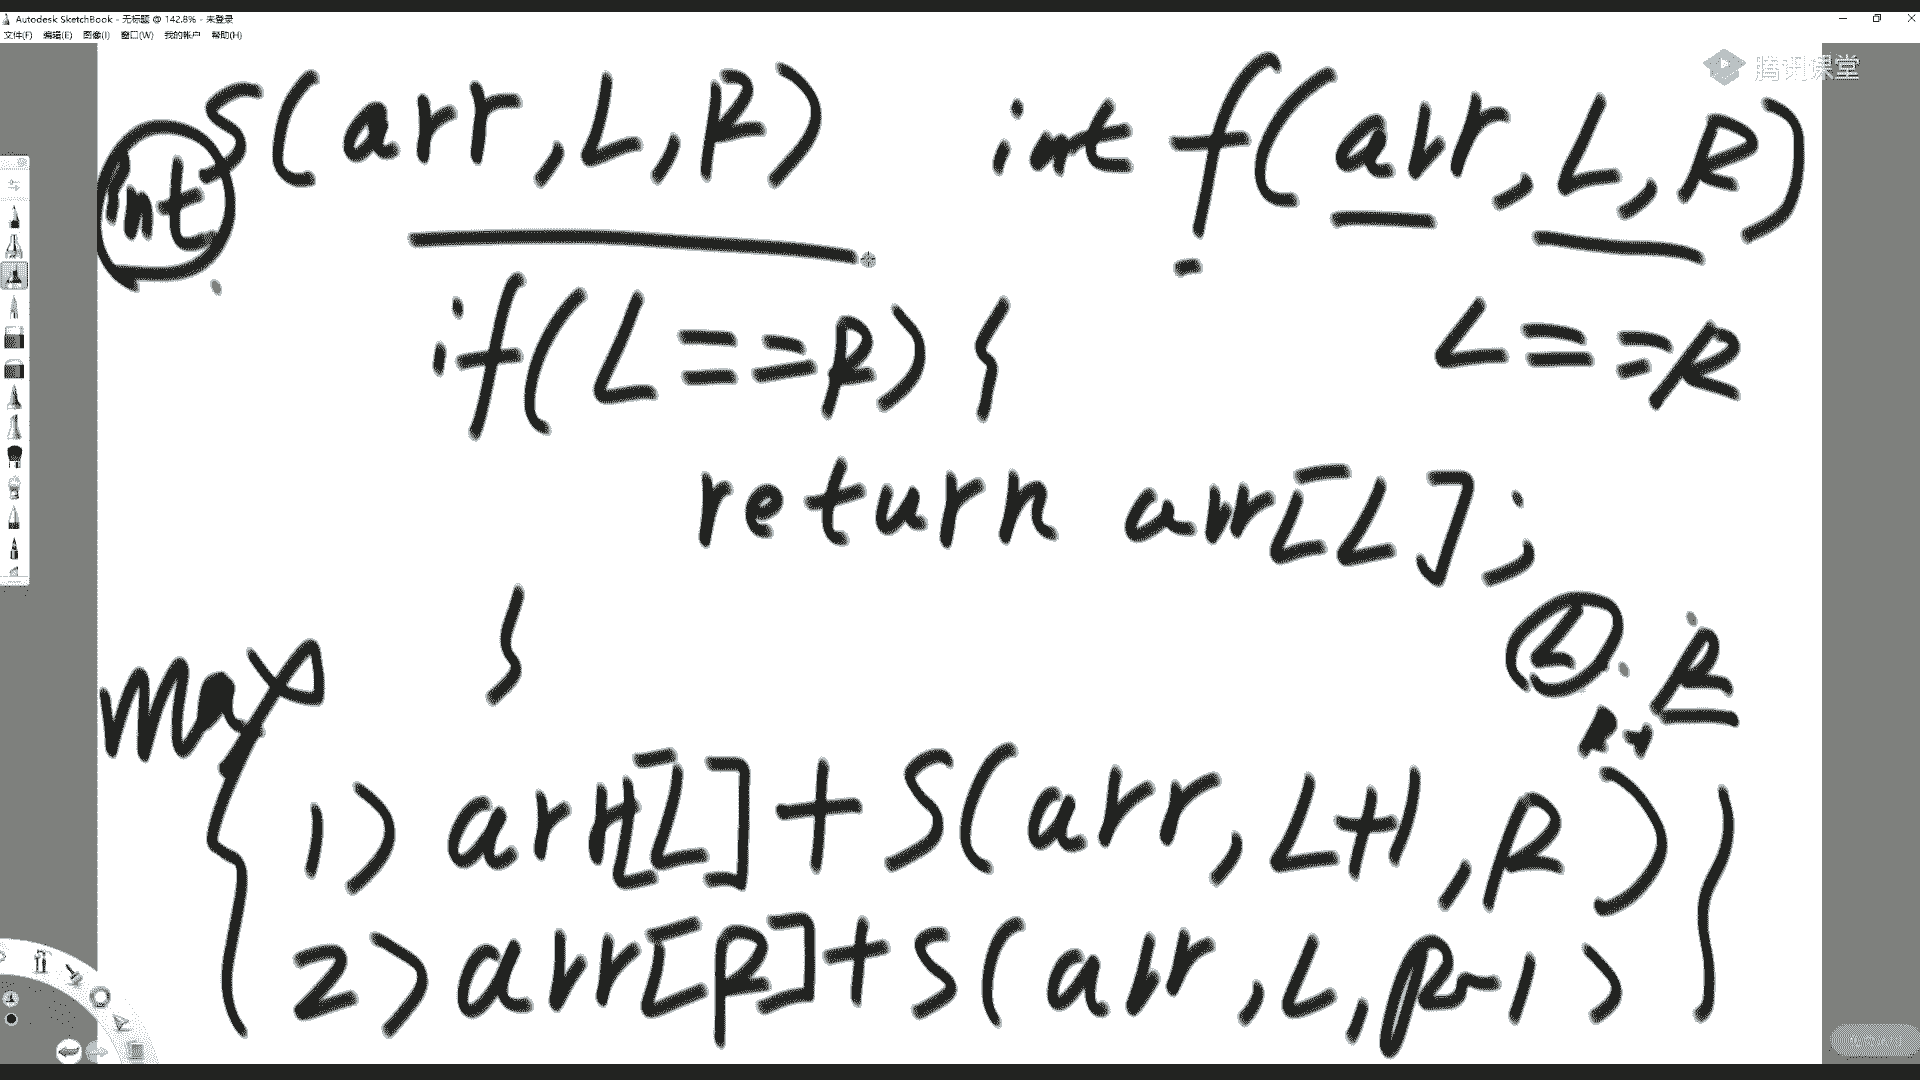 Autodesk SketchBook - 无标题 @ 142.8% - 未登录
文件(F) 编辑(E) 图像(I) 窗口(W) 我的帐户 帮助(H)
腾讯课堂
int S(arr,L,R) int f(arr,L,R)
if(L==R){ L==R
return arr[L];
}
L R
max
{ 1) arr[L]+S(arr,L+1,R) }
2) arr[R]+S(arr,L,R-1)